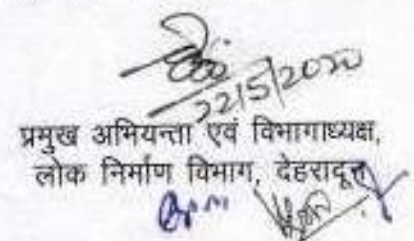 22/5/2020
प्रमुख अभियन्ता एवं विभागाध्यक्ष,
लोक निर्माण विभाग, देहरादून